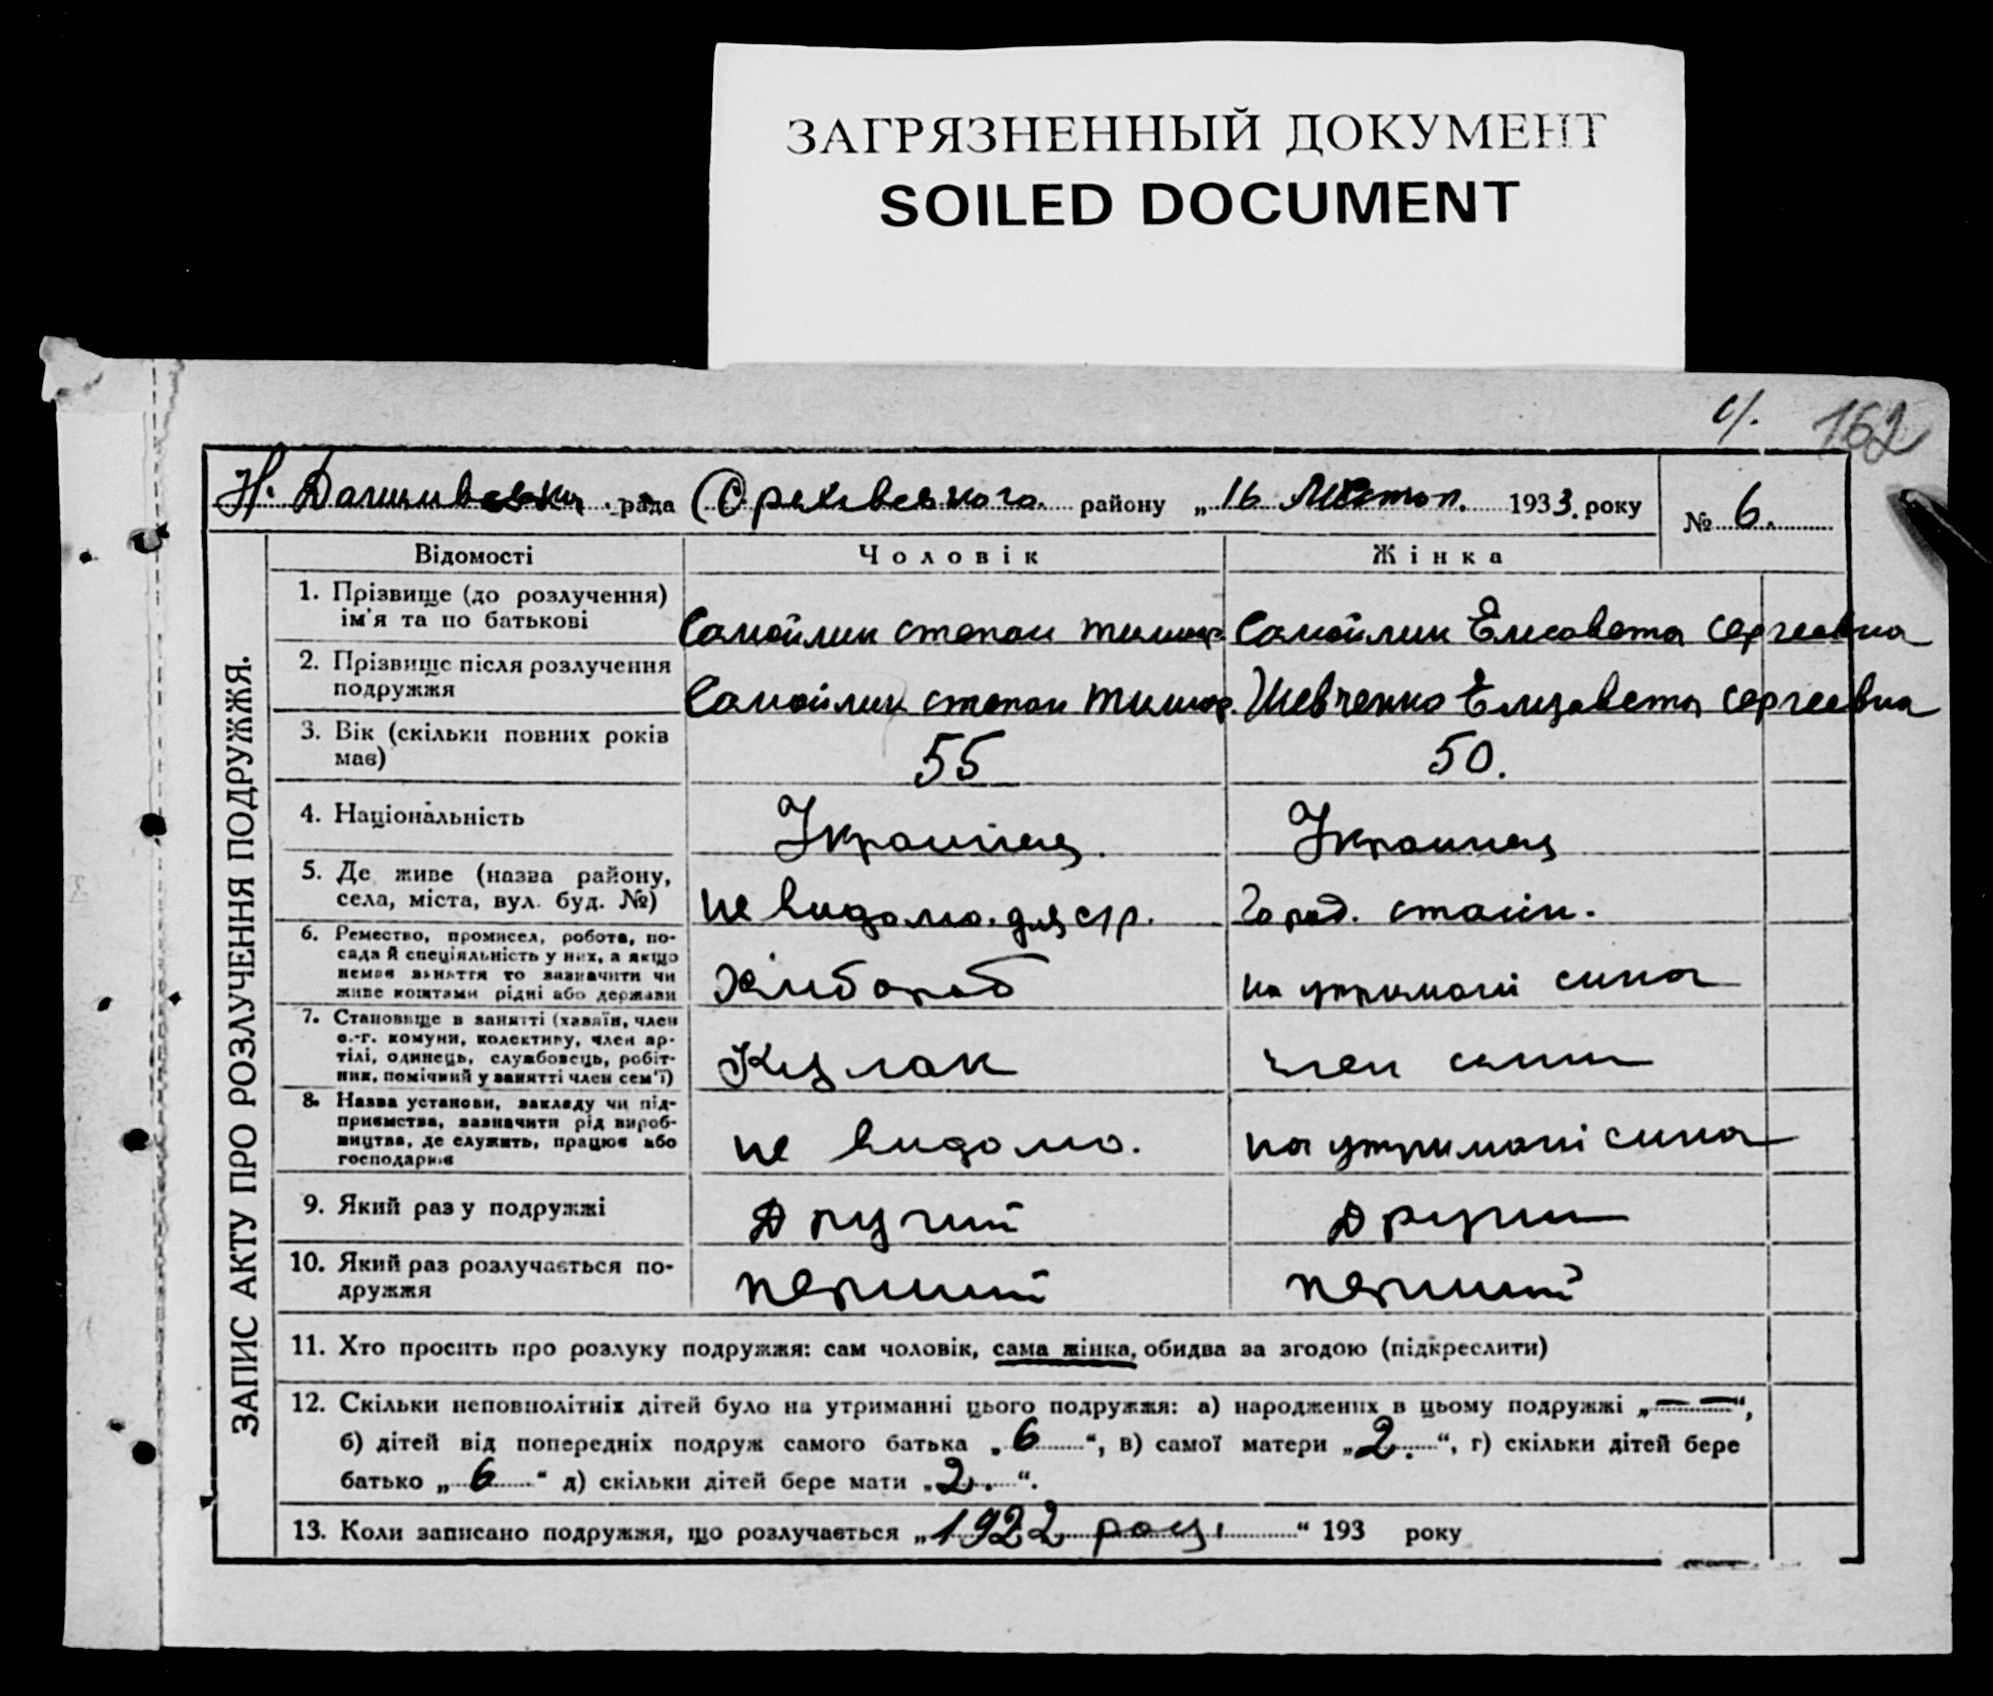 ЗАГРЯЗНЕННЫЙ ДОКУМЕНТ
SOILED DOCUMENT
с/. 162
Н. рада Орехівського району „16 Листоп. 1933. року № 6.
ЗАПИС АКТУ ПРО РОЗЛУЧЕННЯ ПОДРУЖЖЯ.
Відомості Чоловік Жінка
1. Прізвище (до розлучення)
ім'я та по батькові
Самойлик степан тимоф. Самойлик Елисовета сергеевна
2. Прізвище після розлучення
подружжя
Самойлик степан тимоф. Шевченко Елизавета сергеевна
3. Вік (скільки повних років
має)
55 50.
4. Національність
Украинец. Украинец
5. Де живе (назва району,
села, міста, вул. буд. №)
не видомо. для с/р. Город.
6. Ремество, промисел, робота, по-
сада й спеціяльність у них, а якщо
немає заняття то зазначити чи
живе коштами рідні або держави
Хлибороб на утримані сина
7. Становище в занятті (хазяїн, член
с.-г. комуни, колективу, член ар-
тілі, одинець, службовець, робіт-
ник, помічний у занятті член сем'ї)
Куглак член симии
8. Назва установи, закладу чи під-
приємства, зазначити рід вироб-
ництва, де служить, працює або
господарює
не видомо. на утримані сина
9. Який раз у подружжі
Другий Други
10. Який раз розлучається по-
дружжя
первиий первиий
11. Хто просить про розлуку подружжя: сам чоловік, сама жінка, обидва за згодою (підкреслити)
12. Скільки неповнолітніх дітей було на утриманні цього подружжя: а) народжених в цьому подружжі „— —“,
б) дітей від попередніх подруж самого батька „6“, в) самої матери „2.“, г) скільки дітей бере
батько „6“ д) скільки дітей бере мати „2.“.
13. Коли записано подружжя, що розлучається „1922 році“ 193 року